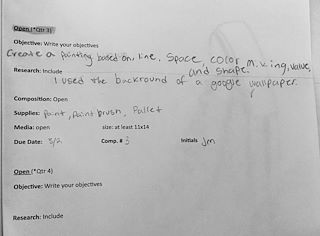 Open (*Qtr 3)
Objective: Write your objectives
Create a painting based on, line, space, color mixing, value,
and shape.
Research: Include
I used the backround of a google wallpaper.
Composition: Open
Supplies: Paint, paint brush, Pallet
Media: open size: at least 11x14
Due Date: 3/2 Comp. # Initials Jm
Open (*Qtr 4)
Objective: Write your objectives
Research: Include